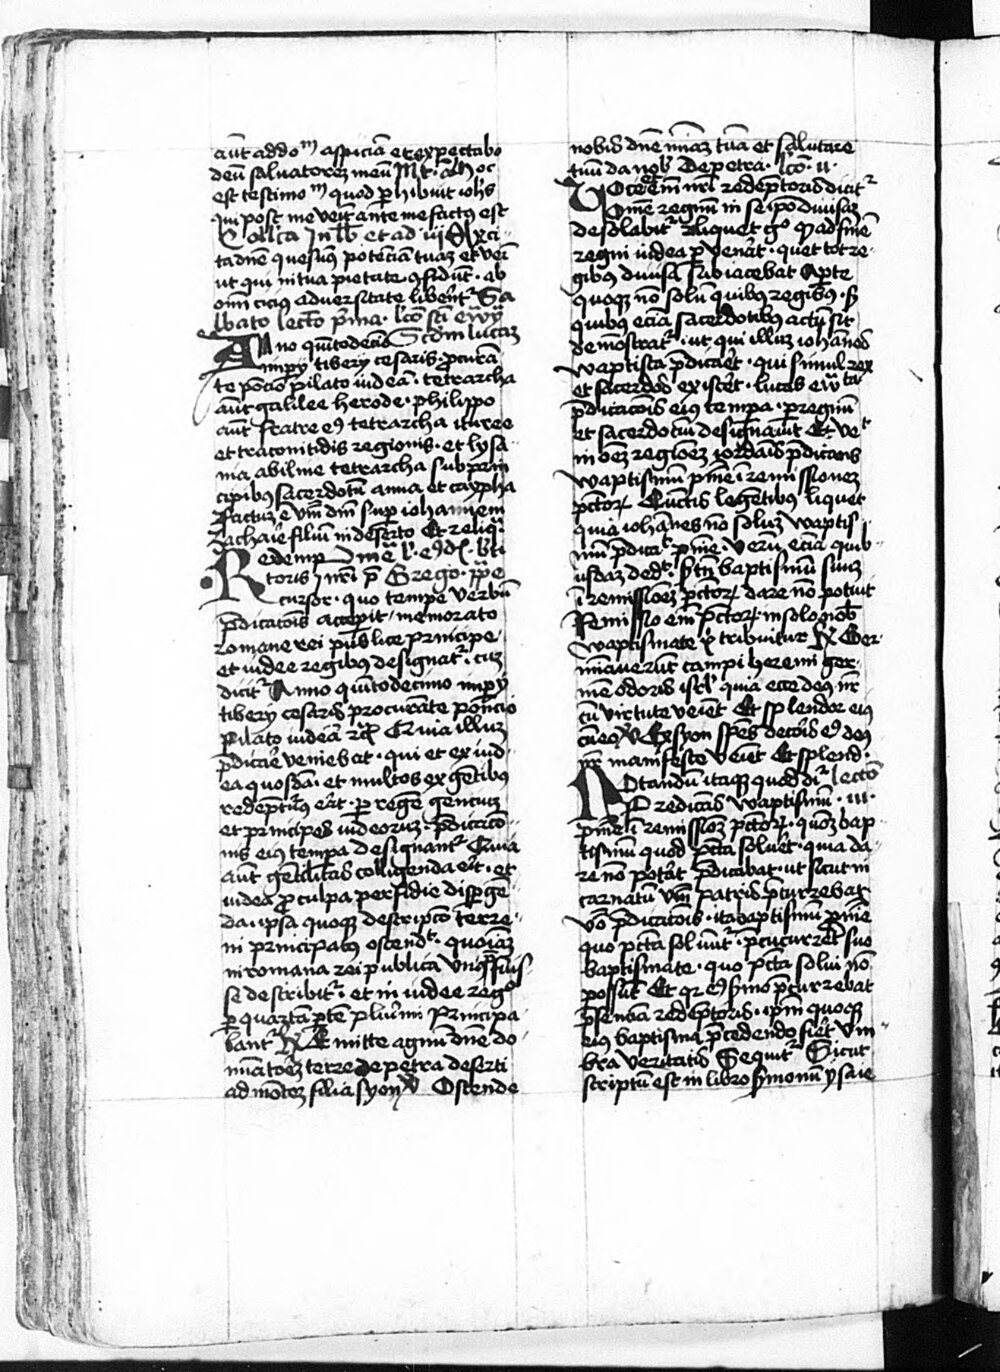 aūt ad doᵐ aspiciā et expectabo
deū saluatorē meū M̄r. a͞n Hoc
est testimoᵐ quod ꝑhibuit ioh̄s
qui post me veīt ante me factus est
Collca In ll̄b et ad iij Exci-
ta dn̄e quesum9 potēciā tuaz et veī
ut qui in tua pietate ꝯfidūt. ab
om̄i cicius aduersitate libēnt᷑ Sa
bbato lectō p̄ma. lc̄o sc̄i ew̄ᵍy
Anno qui͞todecio Scdm lucam
impy tibery cesaris. ꝓcurā
te pōcio pilato iudeā. tetrarcha
aūt galilee herode. philippo
aūt fratre e9 tetrarcha ituree
et traconitidis regionis. et lysa-
nia abiline tetrarcha sub prin
cipibus sacerdotū anna et caypha
Factum ē v̄m dn̄i sup iohannem
Zacharie filiū in deserto Et reliq̄
Redemp
toris nr̄i p̄ Grego. pp̄e
cursor. quo tempe verbū
p̄dicatōis accepit. memorato
romane rei pub̄lice principe
et iudee regibus designat᷑. cuz
dicit᷑ Anno qui͞todecimo impy
tibery cesaris procurāte pōncio
Pilato iudeā rc̄ Quia illum
p̄dicare veniebat. qui et ex iud
ea quosdā. et multos ex gētibus
redēpturus erāt. per regē gencium
et principes iudeorum. p̄dicaco-
nis eius tempa designant᷑ Quia
aūt gētilitas colligenda erat. et
iudea ꝓ culpa perfidie dispgē
da. ipsa quoqꝫ descripcō terre-
ni principatus ostendit. quoniaz
in romana rei publica vnus p̄fuis
se describit᷑. et in iudee regⁿo
ꝑ quartā ꝑte plurimi Principa-
bant᷑ R̄ Emitte agnū dn̄e do-
minatorē terre De petra deserti
ad mōtem filia syon V̄ Ostende
nobis dn̄e miaz tuā et salutare
tuū da nob̄ De petra. lc̄o. ii.
Voce em̄ nr̄i redemptoris dicit᷑
Om̄e regnū in se ipo diuisuz
desolabit᷑ Liquet gͦ q ad finē
regni iudea ꝑvenāt. que tot re-
gibus diuisa subiacebat Apte
quoqꝫ nō solū quibus regibus. sꝫ
quibus eciā sacerdotibus actū sit
demōstrat᷑. ut qui illum iohānes
waptista p̄dicaret. qui simul rex
et sacerdos existēt. lucas ew̄ᵍta
p̄dicacōis eius tempa. ꝑ regnū
et sacerdotiū designauit Et veⁱt
in oēm regioēz iordāis p̄dicans
waptismū pn̄ie ī remissionem
pctoꝝ Cunctis legētibus liquet
quia iohānes nō solum waptis
mū p̄dicaᵗ pn̄ie. verū eciā quib
usdaz dedᵗ. sꝫ tn̄ baptismū suuz
ī remissioez pctoꝝ dare nō potuit
Remissio em̄ pctoꝝ in solo nob̄
waptismate xi tribuitur R̄ Ger-
minauerūt campi heremi ger-
mē odoris isrl̄ quia ecce deus nr̄
cū virtute veīet Et splendor eius
cū eo V̄ Ex syon spēs decoris e9 deus
nr̄ manifeste veīet Et splend.
Notandū itaqꝫ quod dr̄ lectō
Predicās waptismū. iii.
pn̄ie ī remissiōz pctoꝝ. quōz bap
tismū quod pcta solu̅et. quia da-
re nō potāt p̄dicabat. ut sicut in
carnatū v̄m patris p̄currebat
v̄o p̄dicatōis. ita baptismū pn̄ie
quo pcta soluūt᷑. p̄cucurr͞et suo
baptismate. quo pcta solui nō
possūt Et qꝛ e9 sꝫmo p̄currebat
p̄sencia redēptoris. ip̄m quoqꝫ
eius baptisma p̄cedendo fieᵗ vm
bra veritatis Sequit᷑ Sicut
scriptū est in libro sꝫmonum ysaie